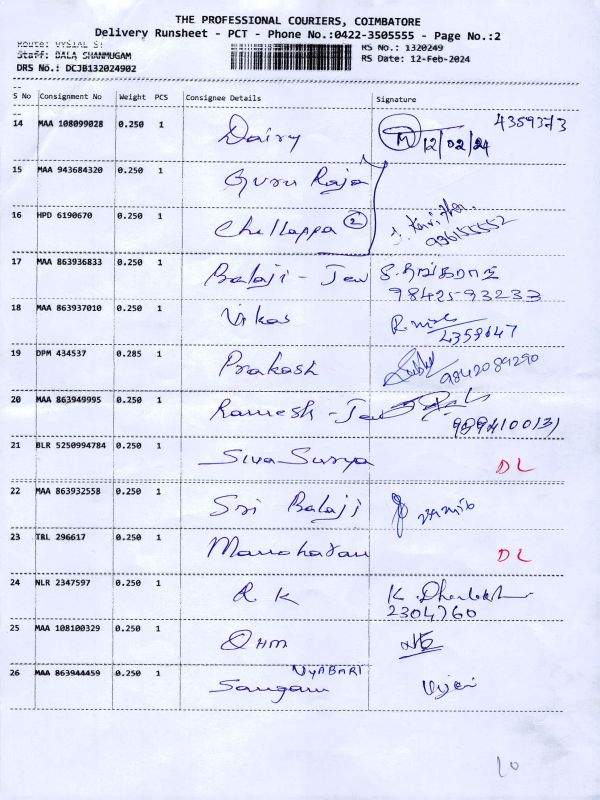 THE PROFESSIONAL COURIERS, COIMBATORE
Delivery Runsheet - PCT - Phone No.:0422-3505555 - Page No.:2
Route: VYSIAL ST
RS No.: 1320249
Staff: BALA SHANMUGAM
RS Date: 12-Feb-2024
DRS No.: DCJB132024902
S No Consignment No Weight PCS Consignee Details Signature
14 MAA 108099028 0.250 1 Dairy M 12/02/24 4359373
15 MAA 943684320 0.250 1 Guru Raja
16 HPD 6190670 0.250 1 Chellappa 2
936155552
17 MAA 863936833 0.250 1 Balaji - Jew
98425-93233
18 MAA 863937010 0.250 1 Vikas
4358647
19 DPM 434537 0.285 1 Prakash 9842089290
20 MAA 863949995 0.250 1 Ramesh - Jew
9894100131
21 BLR 5250994784 0.250 1 Siva Surya DL
22 MAA 863932558 0.250 1 Sri Balaji
23 TRL 296617 0.250 1 Manoharan DL
24 NLR 2347597 0.250 1 R K
2304760
25 MAA 108100329 0.250 1 OHM
26 MAA 863944459 0.250 1 Sangam VYABARI
10